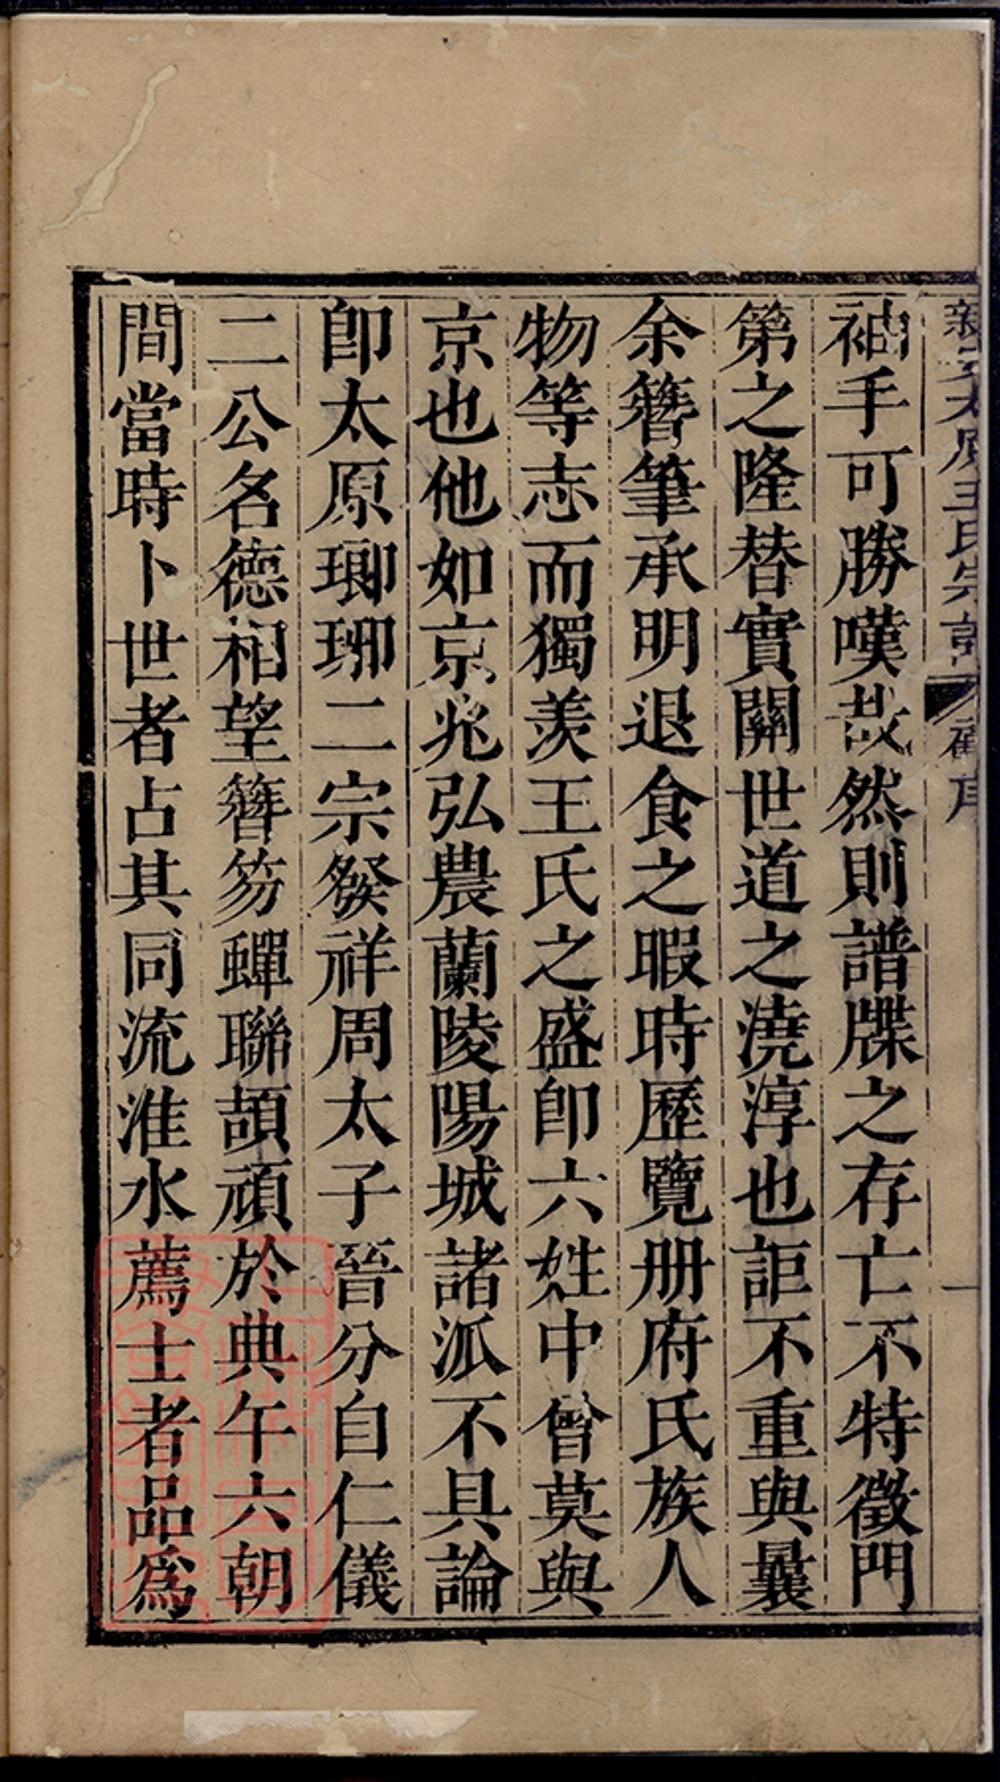 太原王氏宗
袖手可勝嘆哉然則譜牒之存亡不特徵門
第之隆替實關世道之澆淳也詎不重與曩
余簪筆承明退食之暇時歷覽册府氏族人
物等志而獨羨王氏之盛卽六姓中曾莫與
京也他如京兆弘農蘭陵陽城諸派不具論
卽太原瑯琊二宗發祥周太子晉分自仁儀
二公名德相望簪笏蟬聯頡頏於典午六朝
間當時卜世者占其同流淮水薦士者品爲